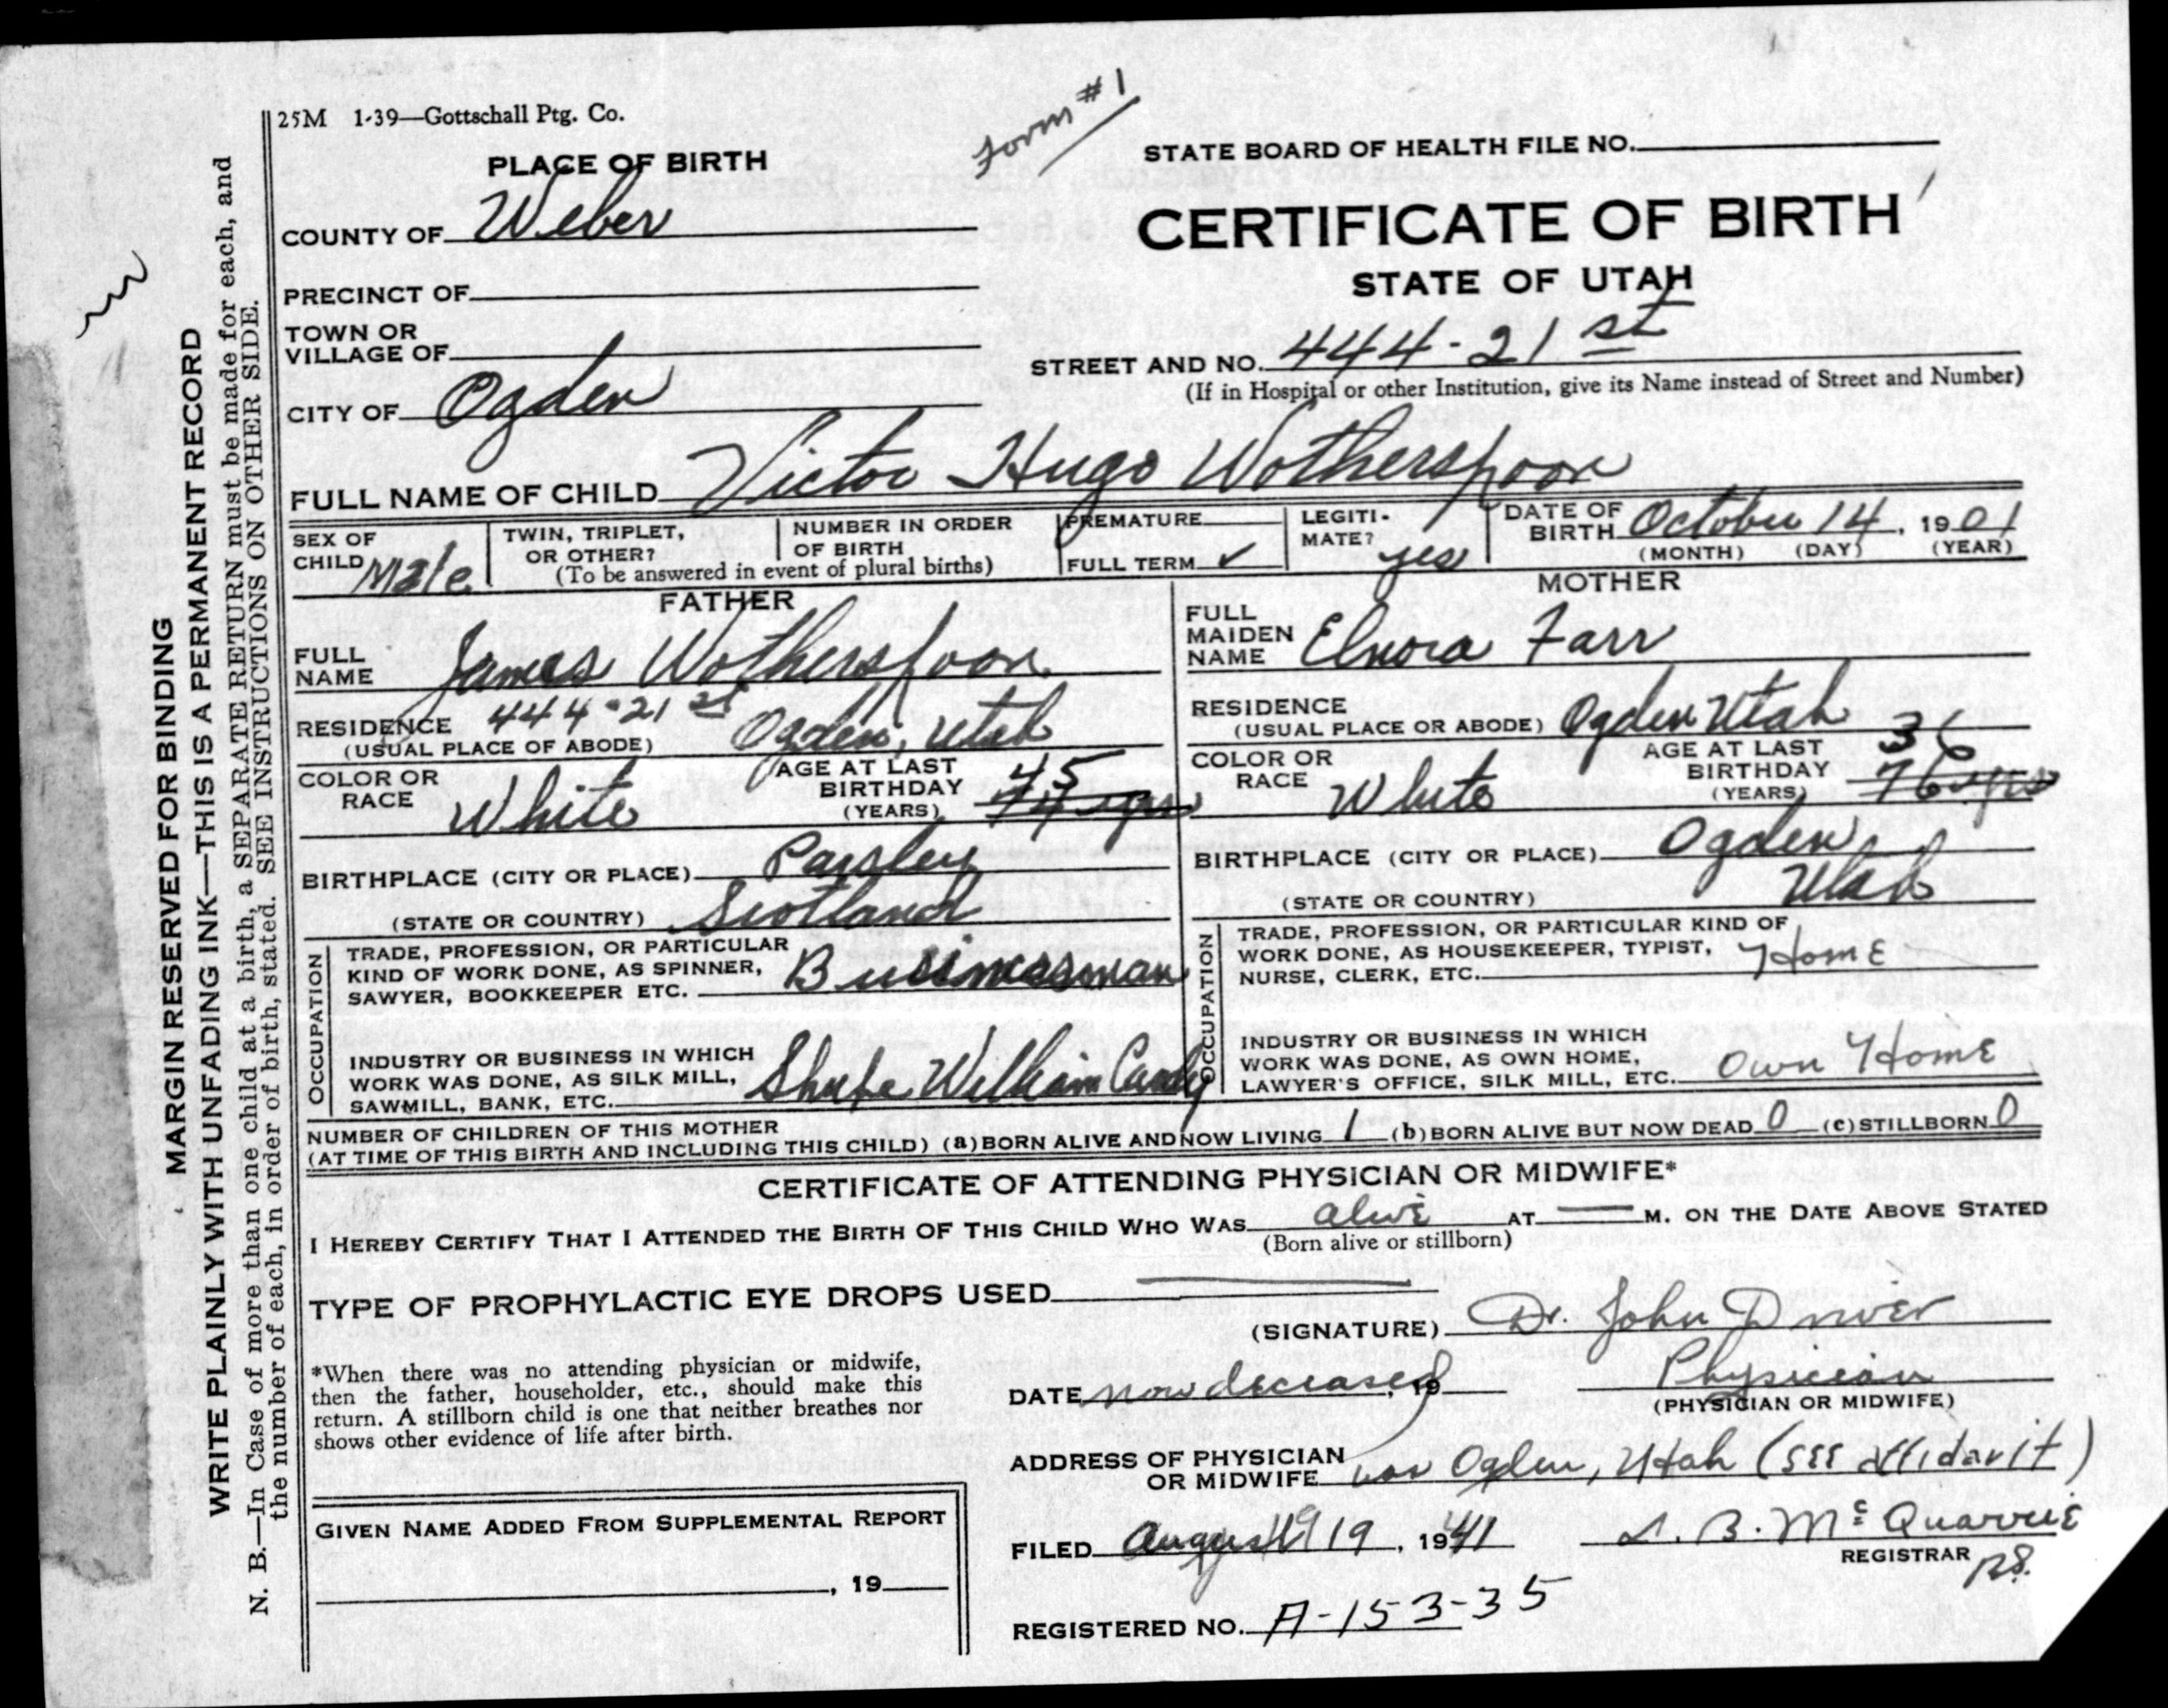 25M 1-39—Gottschall Ptg. Co.
Form #1
STATE BOARD OF HEALTH FILE NO.
PLACE OF BIRTH
CERTIFICATE OF BIRTH
STATE OF UTAH
COUNTY OF Weber
PRECINCT OF
TOWN OR
VILLAGE OF
STREET AND NO. 444-21st
(If in Hospital or other Institution, give its Name instead of Street and Number)
CITY OF Ogden
FULL NAME OF CHILD Victor Hugo Wotherspoon
SEX OF
CHILD Male
TWIN, TRIPLET,
OR OTHER?
NUMBER IN ORDER
OF BIRTH
(To be answered in event of plural births)
PREMATURE
FULL TERM ✓
LEGITI-
MATE? yes
DATE OF
BIRTH October 14, 1901
(MONTH) (DAY) (YEAR)
FATHER
FULL
NAME James Wotherspoon
RESIDENCE 444-21st
(USUAL PLACE OF ABODE) Ogden, Utah
COLOR OR
RACE White
AGE AT LAST
BIRTHDAY
(YEARS) 45
BIRTHPLACE (CITY OR PLACE) Paisley
(STATE OR COUNTRY) Scotland
OCCUPATION
TRADE, PROFESSION, OR PARTICULAR
KIND OF WORK DONE, AS SPINNER,
SAWYER, BOOKKEEPER ETC. Businessman
INDUSTRY OR BUSINESS IN WHICH
WORK WAS DONE, AS SILK MILL,
SAWMILL, BANK, ETC. Shupe William Candy
MOTHER
FULL
MAIDEN
NAME Elnora Farr
RESIDENCE
(USUAL PLACE OR ABODE) Ogden Utah
COLOR OR
RACE White
AGE AT LAST
BIRTHDAY
(YEARS) 36
76 yrs
BIRTHPLACE (CITY OR PLACE) Ogden
(STATE OR COUNTRY) Utah
OCCUPATION
TRADE, PROFESSION, OR PARTICULAR KIND OF
WORK DONE, AS HOUSEKEEPER, TYPIST,
NURSE, CLERK, ETC. Home
INDUSTRY OR BUSINESS IN WHICH
WORK WAS DONE, AS OWN HOME,
LAWYER'S OFFICE, SILK MILL, ETC. Own Home
NUMBER OF CHILDREN OF THIS MOTHER
(AT TIME OF THIS BIRTH AND INCLUDING THIS CHILD) (a) BORN ALIVE AND NOW LIVING 1 (b) BORN ALIVE BUT NOW DEAD 0 (c) STILLBORN 0
CERTIFICATE OF ATTENDING PHYSICIAN OR MIDWIFE*
I HEREBY CERTIFY THAT I ATTENDED THE BIRTH OF THIS CHILD WHO WAS alive AT — M. ON THE DATE ABOVE STATED
(Born alive or stillborn)
TYPE OF PROPHYLACTIC EYE DROPS USED
(SIGNATURE) Dr. John Driver
*When there was no attending physician or midwife,
then the father, householder, etc., should make this
return. A stillborn child is one that neither breathes nor
shows other evidence of life after birth.
DATE now deceased, 19
Physician
(PHYSICIAN OR MIDWIFE)
ADDRESS OF PHYSICIAN
OR MIDWIFE was Ogden, Utah (see affidavit)
GIVEN NAME ADDED FROM SUPPLEMENTAL REPORT
, 19
FILED August 19, 1941
L. B. McQuarrie
REGISTRAR
RS.
REGISTERED NO. A-153-35
MARGIN RESERVED FOR BINDING
WRITE PLAINLY WITH UNFADING INK—THIS IS A PERMANENT RECORD
N. B.—In Case of more than one child at a birth, a SEPARATE RETURN must be made for each, and
the number of each, in order of birth, stated. SEE INSTRUCTIONS ON OTHER SIDE.